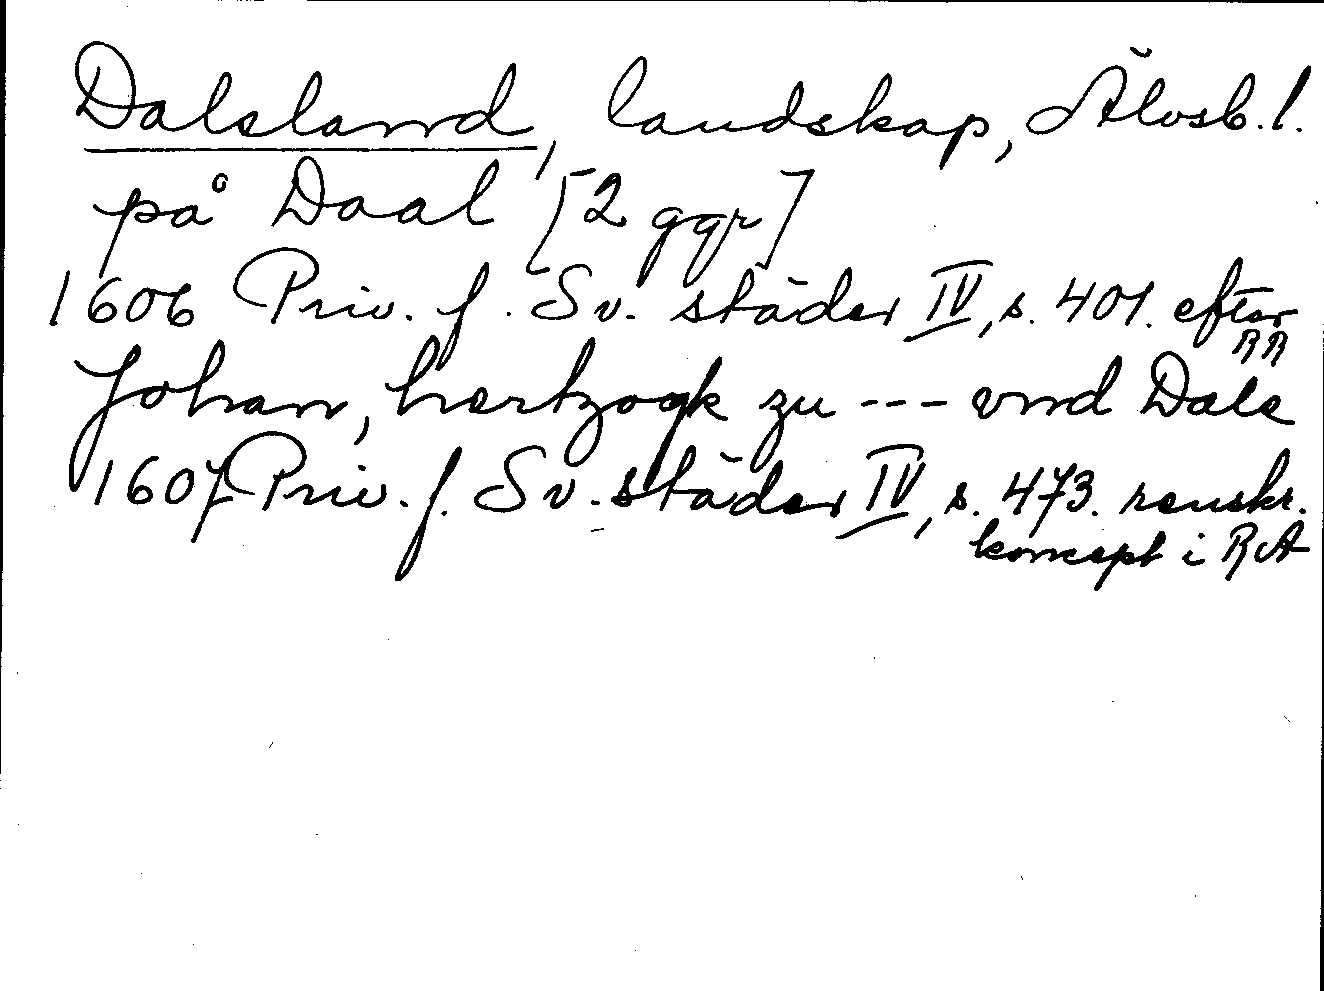 Dalsland, landskap, Älvsb. l.
på Daal [2 ggr]
1606 Priv. f. Sv. städer IV, s. 401. efter
RR
Johan, hertzogk zu --- vnd Dale
1607 Priv. f. Sv. städer IV, s. 473. renskr.
koncept i RA